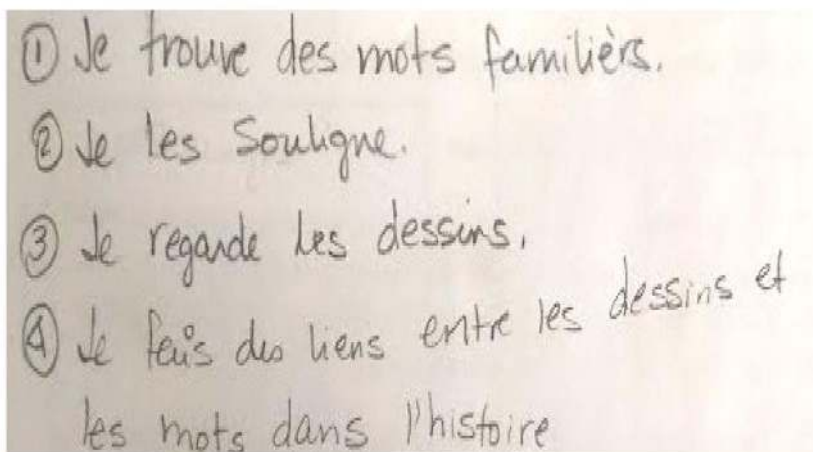 ① Je trouve des mots familièrs.
② Je les souligne.
③ Je regarde les dessins.
④ Je fais des liens entre les dessins et
les mots dans l'histoire